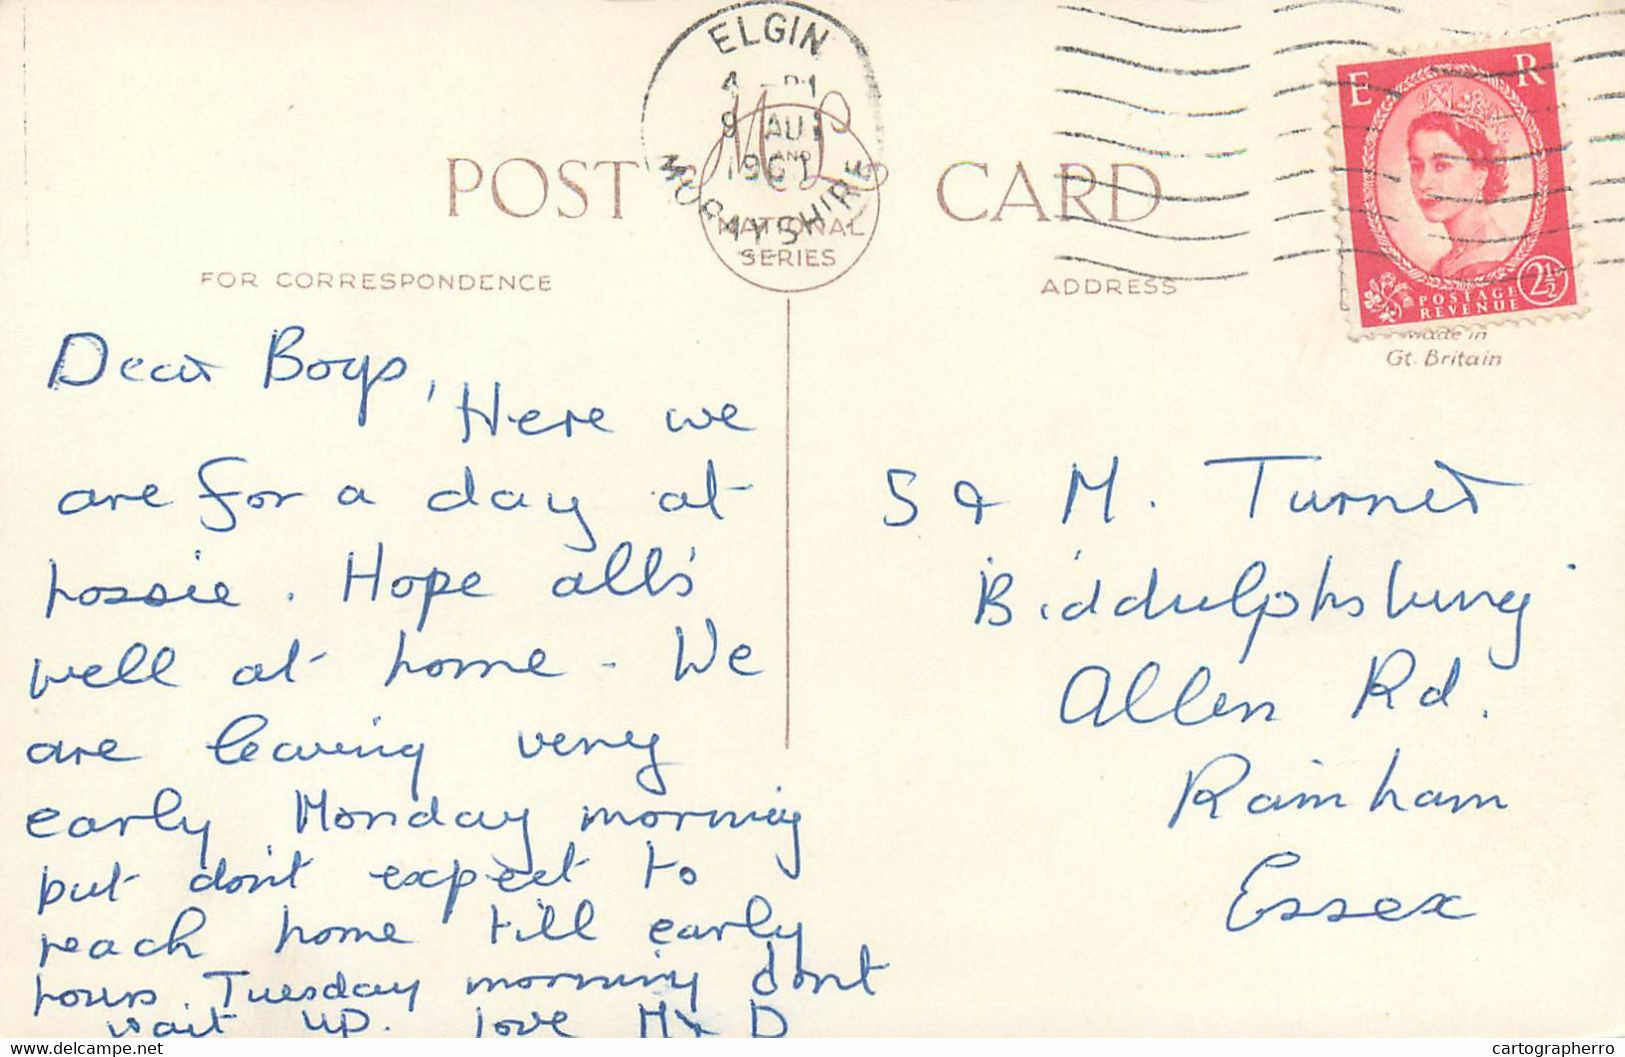 ELGIN
9 AU
1961
MORAYSHIRE
POST CARD
M AND L
NATIONAL
SERIES
E R
POSTAGE
REVENUE
2½
FOR CORRESPONDENCE
ADDRESS
Made in
Gt. Britain
Dear Boys,
Here we
are for a day at
Lossie. Hope all's
well at home - We
are leaving very
early Monday morning
but don't expect to
reach home till early
hours Tuesday morning dont
wait up. love M & D
S & M. Turner
Biddulphsburg
Allen Rd.
Rainham
Essex
www.delcampe.net
cartographerro